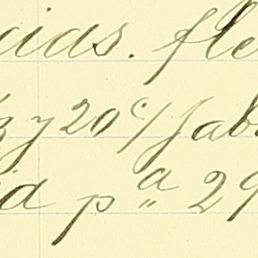 cias. fle
y 20 c/ fab
id pª 29